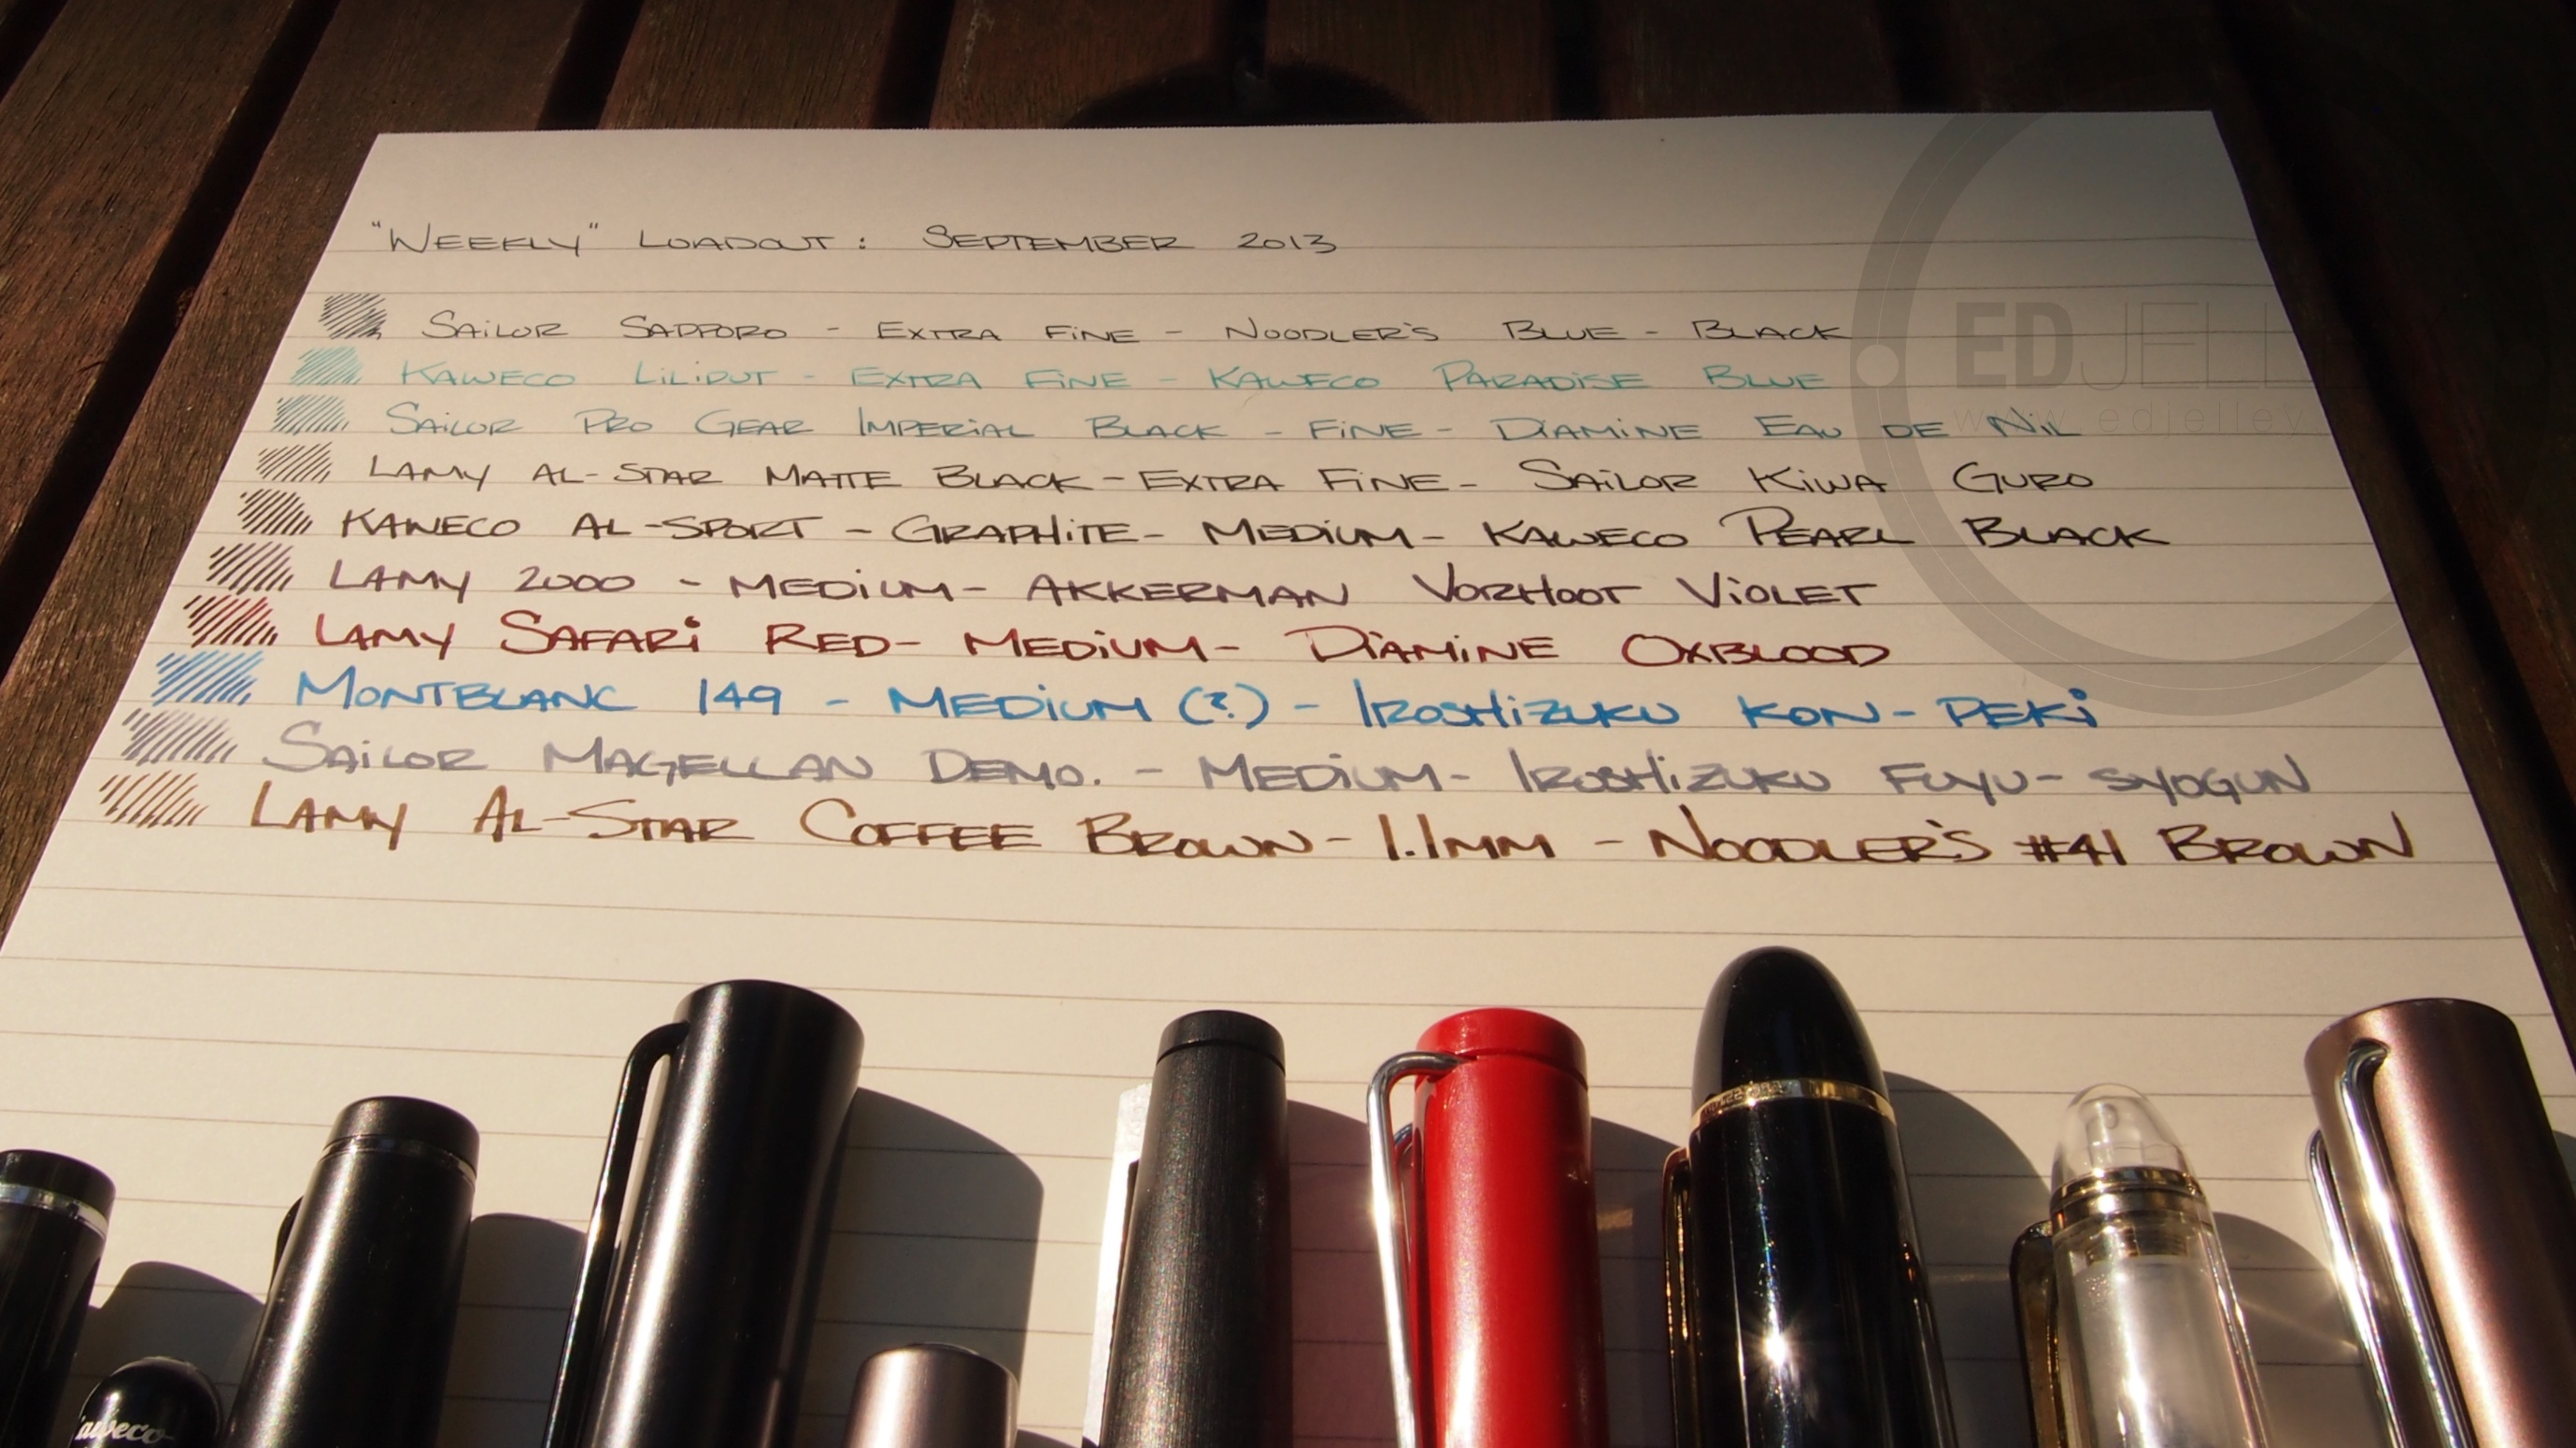 "WEEKLY" LOADOUT: SEPTEMBER 2013
SAILOR SAPPORO - EXTRA FINE - NOODLER'S BLUE-BLACK
KAWECO LILIPUT - EXTRA FINE - KAWECO PARADISE BLUE
SAILOR PRO GEAR IMPERIAL BLACK - FINE - DIAMINE EAU DE NIL
LAMY AL-STAR MATTE BLACK - EXTRA FINE - SAILOR KIWA GURO
KAWECO AL-SPORT - GRAPHITE - MEDIUM - KAWECO PEARL BLACK
LAMY 2000 - MEDIUM - AKKERMAN VORHOOT VIOLET
LAMY SAFARI RED - MEDIUM - DIAMINE OXBLOOD
MONTBLANC 149 - MEDIUM (?) - IROSHIZUKU KON-PEKI
SAILOR MAGELLAN DEMO. - MEDIUM - IROSHIZUKU FUYU-SYOGUN
LAMY AL-STAR COFFEE BROWN - 1.1MM - NOODLER'S #41 BROWN
EDJELLE
www.edjelley
aweco